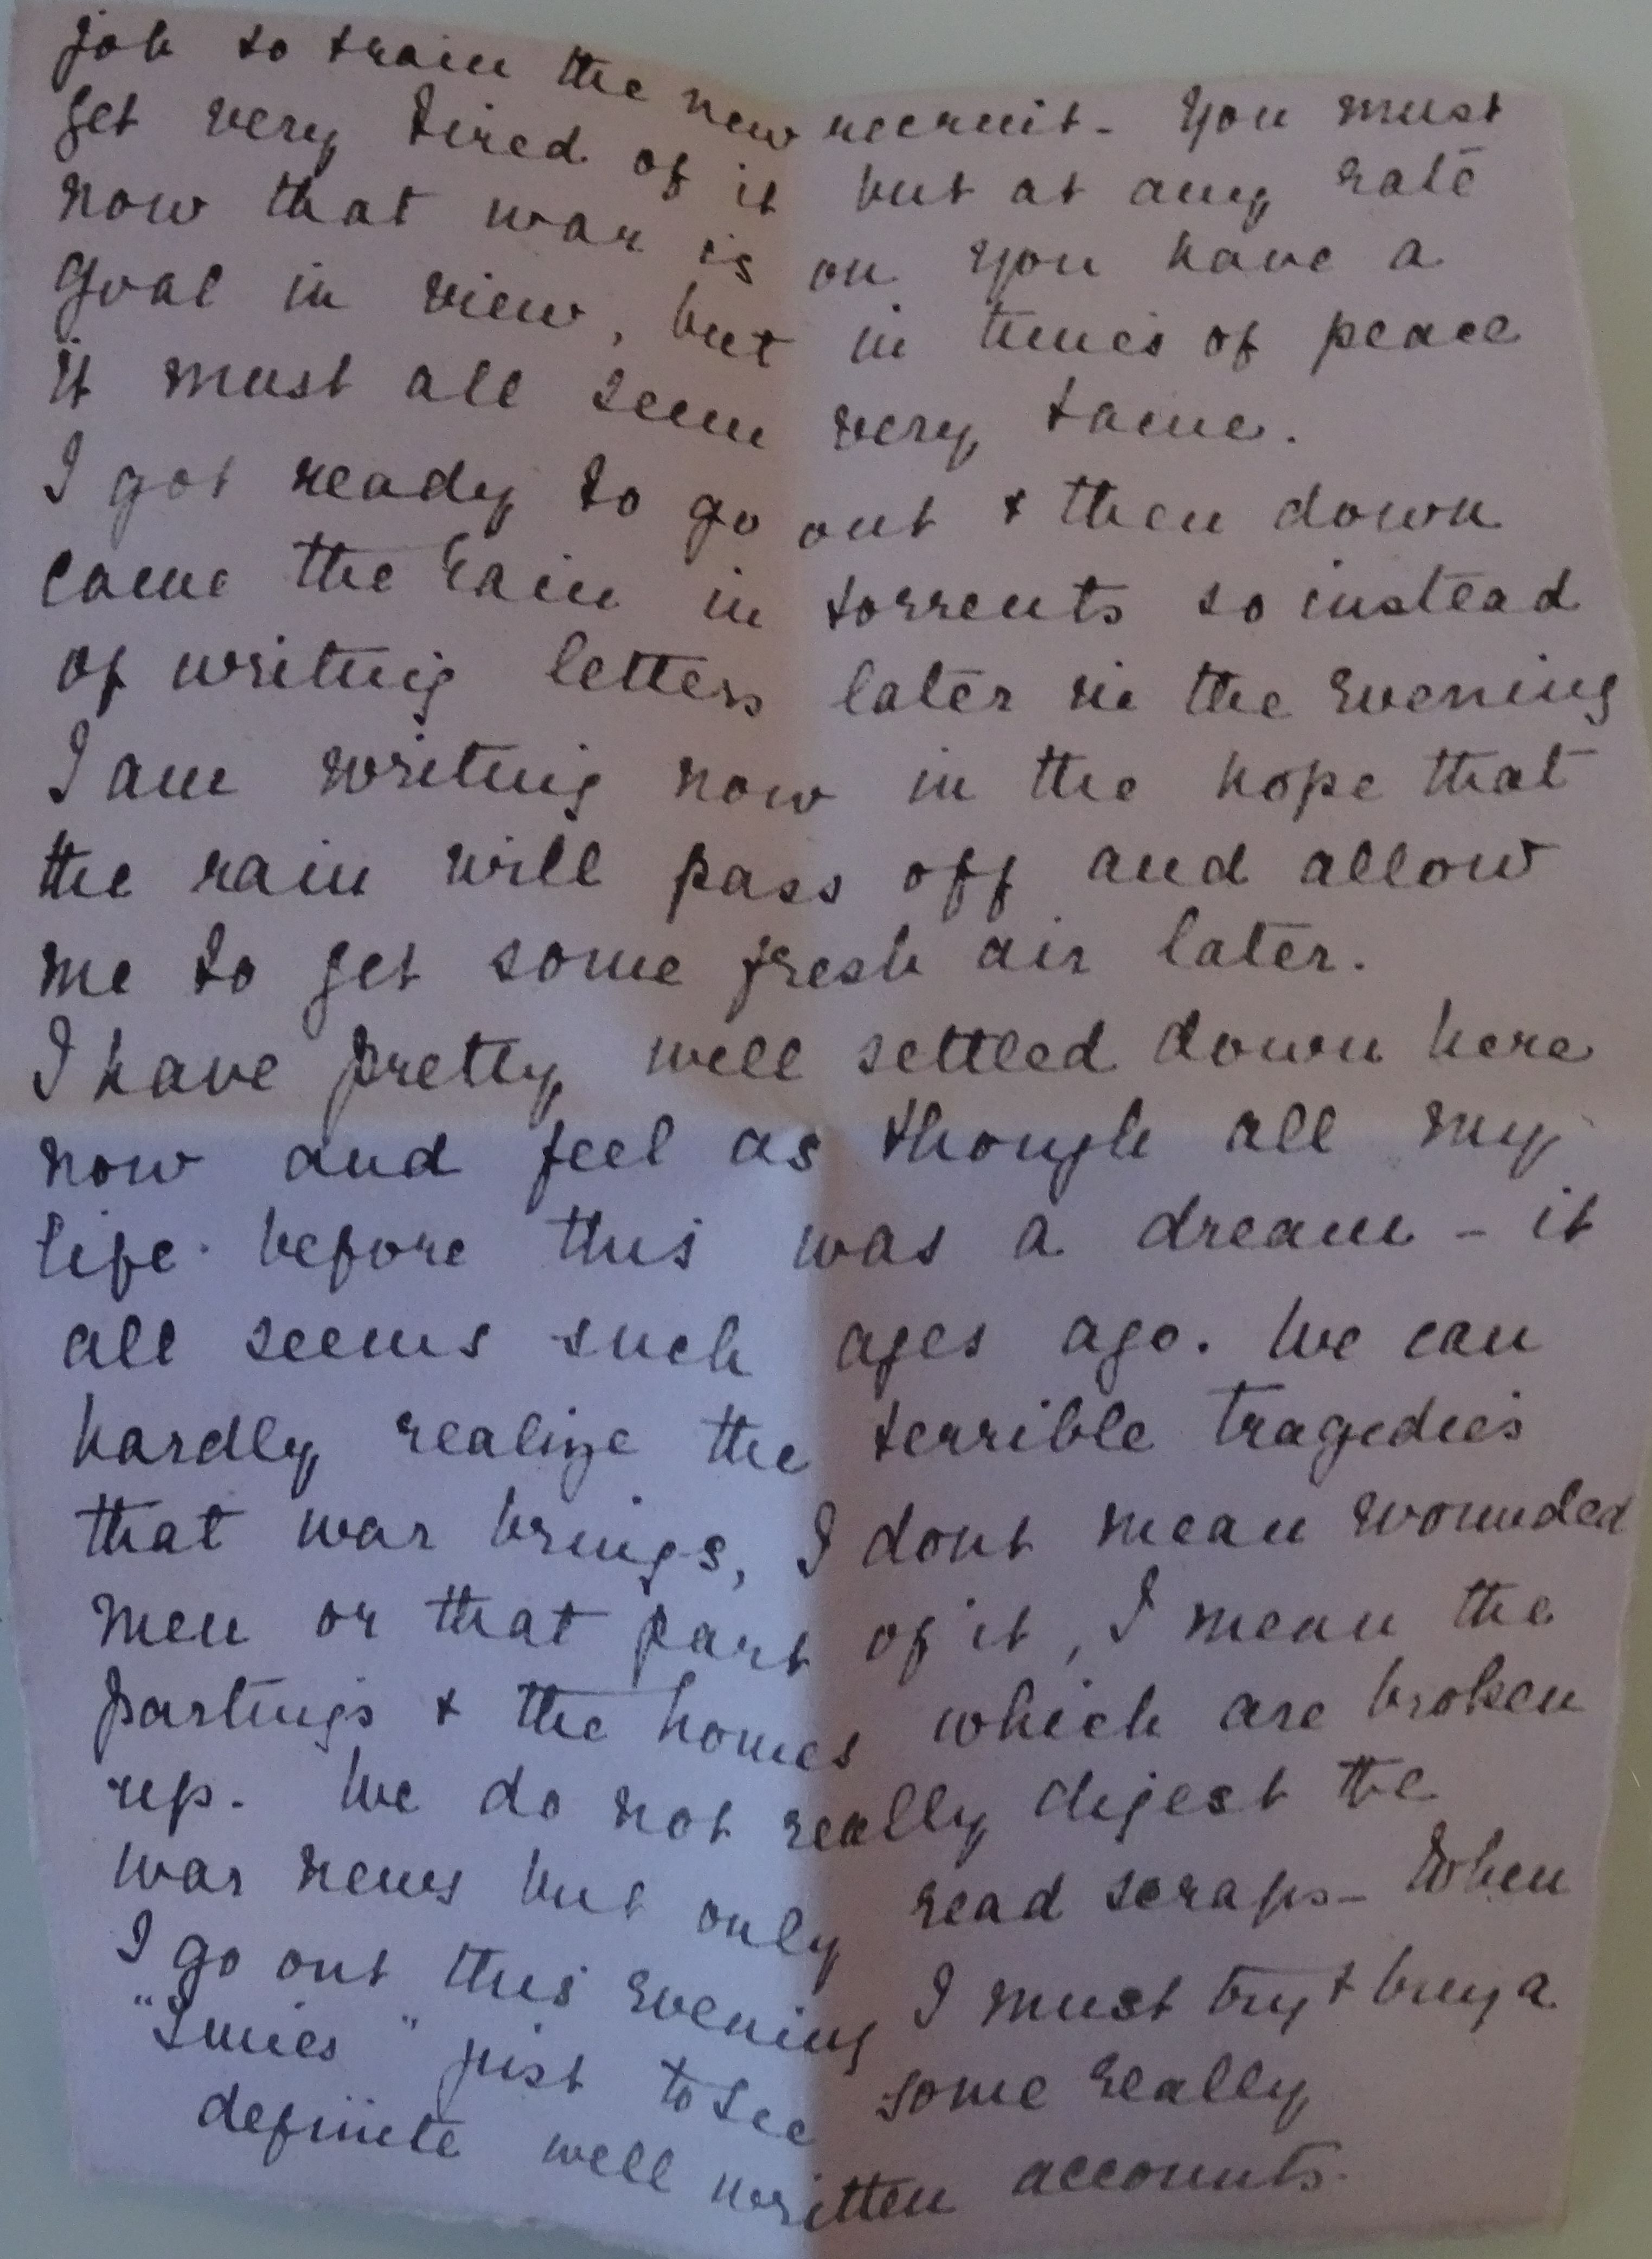 job to train the new recruit - You must
get very tired of it but at any rate
now that war is on you have a
goal in view, but in times of peace
it must all seem very tame.
I got ready to go out & then down
came the rain in torrents so instead
of writing letters later in the evening
I am writing now in the hope that
the rain will pass off and allow
me to get some fresh air later.
I have pretty well settled down here
now and feel as though all my
life before this was a dream - it
all seems such ages ago. We can
hardly realize the terrible tragedies
that war brings, I dont mean wounded
men or that part of it, I mean the
partings & the homes which are broken
up. We do not really digest the
war news but only read scraps - When
I go out this evening I must try & buy a
"Times" just to see some really
definite well written accounts.